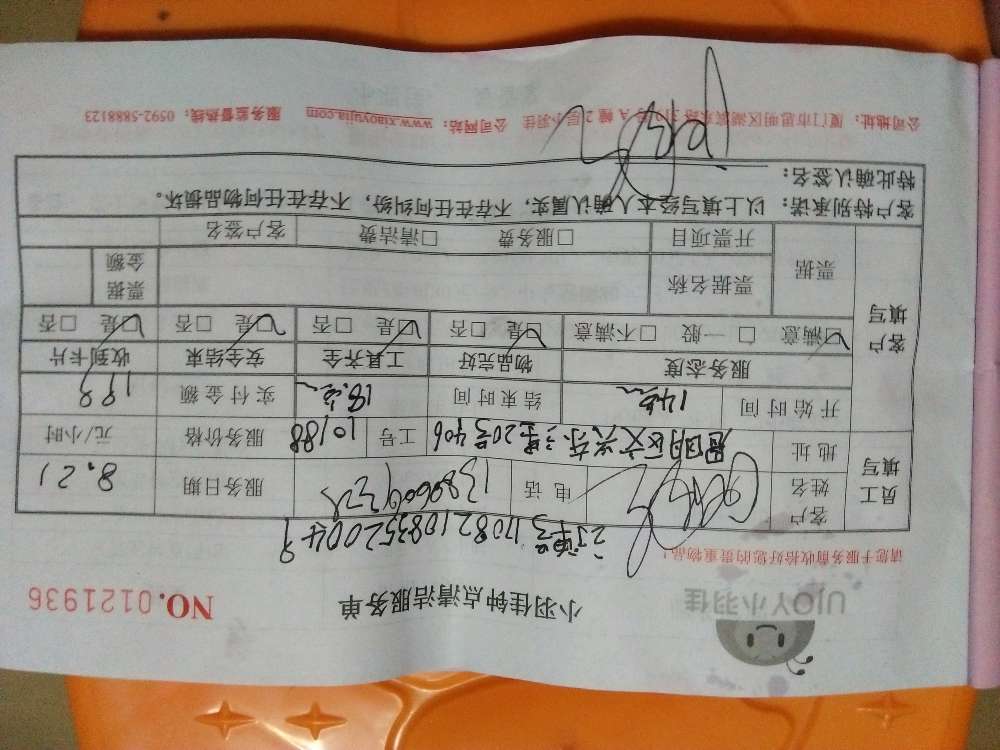 UJOY小羽佳
小羽佳钟点清洁服务单
NO.0121936
请您于服务前收拾好您的贵重物品!
订单号
员工填写
客户姓名
电话
服务日期
8.21
地址
思明区文兴东三里20号406
工号
10188
服务价格
元/小时
开始时间
14点
结束时间
18点
实付金额
客户填写
服务态度
物品完好
工具齐全
安全结束
收到卡片
☑满意 □一般 □不满意
☑是 □否
☑是 □否
☑是 □否
☑是 □否
票据
票据名称
票据金额
开票项目
□服务费 □清洁费
客户签名
客户特别承诺：以上填写经本人确认属实，不存在任何纠纷，不存在任何物品损坏。
特此确认签名：
公司地址：厦门市思明区湖滨
A幢2层小羽佳
公司网站：www.xiaoyujia.com
服务监督热线：0592-5888123